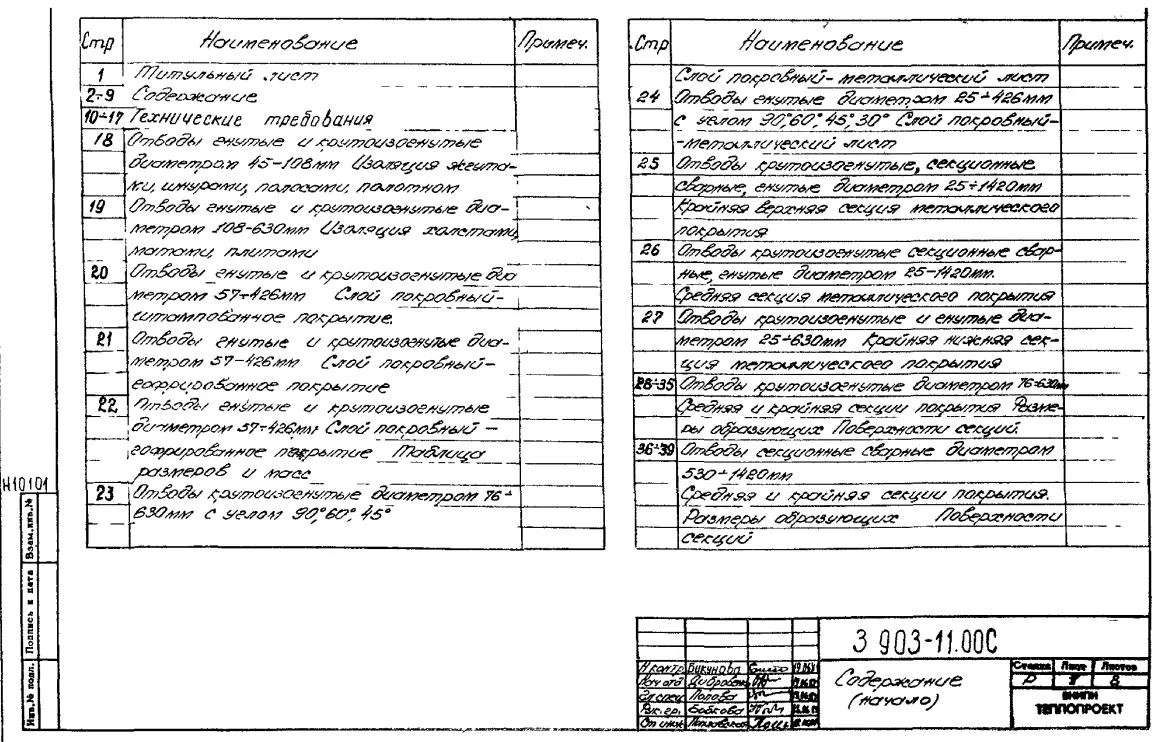 Стр Наименование Примеч.
1 Титульный лист
2÷9 Содержание
10÷17 Технические требования
18 Отводы гнутые и крутоизогнутые
диаметром 45-108мм Изоляция жгута-
ми, шнурами, полосами, полотном
19 Отводы гнутые и крутоизогнутые диа-
метром 108-630мм Изоляция холстами,
матами, плитами
20 Отводы гнутые и крутоизогнутые диа
метром 57÷426мм Слой покровный-
штампованное покрытие.
21 Отводы гнутые и крутоизогнутые диа-
метром 57-426мм Слой покровный-
гофрированное покрытие
22 Отводы гнутые и крутоизогнутые
диаметром 57÷426мм Слой покровный -
гофрированное покрытие Таблица
размеров и масс
23 Отводы крутоизогнутые диаметром 76÷
630мм с углом 90°, 60°, 45°
Стр Наименование Примеч.
Слой покровный- металлический лист
24 Отводы гнутые диаметром 25÷426мм
с углом 90°, 60°, 45°, 30° Слой покровный-
-металлический лист
25 Отводы крутоизогнутые, секционные
сварные, гнутые диаметром 25÷1420мм
Крайняя верхняя секция металлического
покрытия
26 Отводы крутоизогнутые секционные свар-
ные, гнутые диаметром 25-1420мм.
Средняя секция металлического покрытия
27 Отводы крутоизогнутые и гнутые диа-
метром 25÷630мм Крайняя нижняя сек-
ция металлического покрытия
28÷35 Отводы крутоизогнутые диаметром 76÷630мм
Средняя и крайняя секции покрытия Разме-
ры образующих Поверхности секций.
36÷39 Отводы секционные сварные диаметром
530÷1420мм
Средняя и крайняя секции покрытия.
Размеры образующих Поверхности
секций
Н10101
Взам.инв.№
Подпись и дата
Инв.№ подл.
3 903-11.00С
Н контр Бикунова
Нач отд
Гл спец Попова
Рук.гр. Бобкова
Ст инж
Содержание
(начало)
Стадия Лист Листов
Р 8
ВНИПИ
ТЕПЛОПРОЕКТ